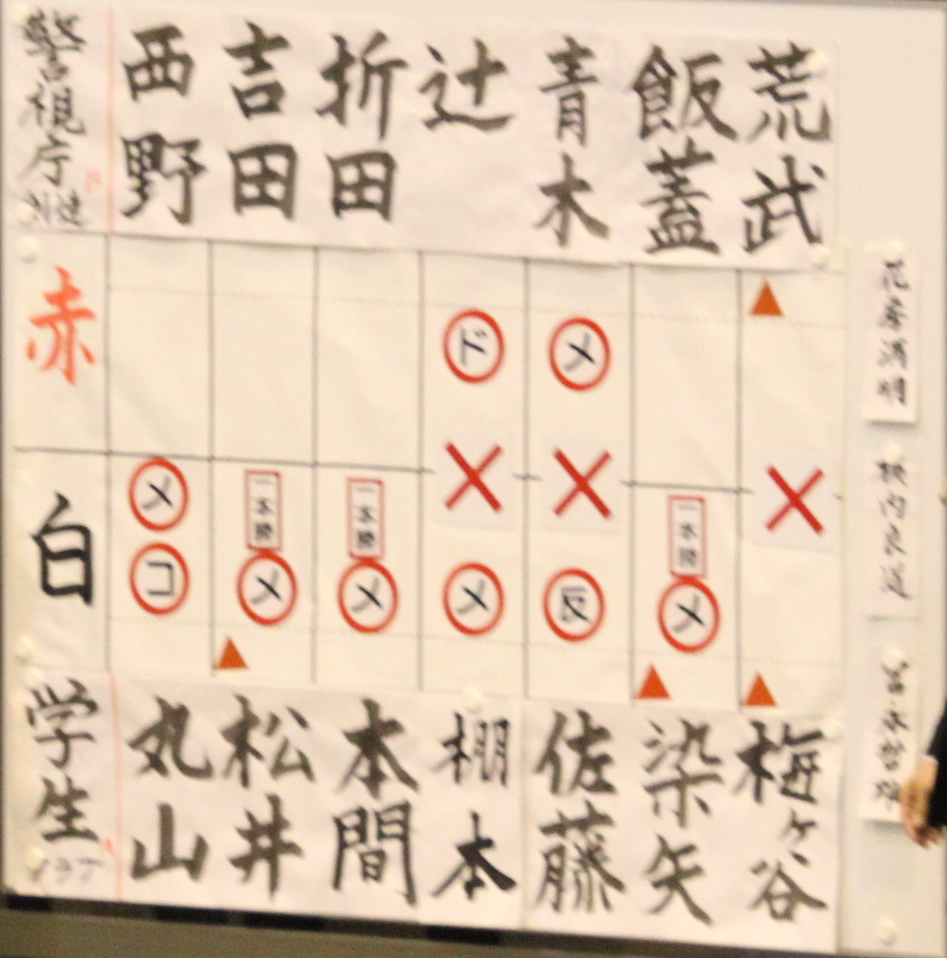 荒武
飯蓋
青木
辻
折田
吉田
西野
警視庁
赤
ド
メ
白
メ
コ
一本勝
メ
一本勝
メ
メ
反
一本勝
メ
梅ヶ谷
染矢
佐藤
棚本
本間
松井
丸山
学生